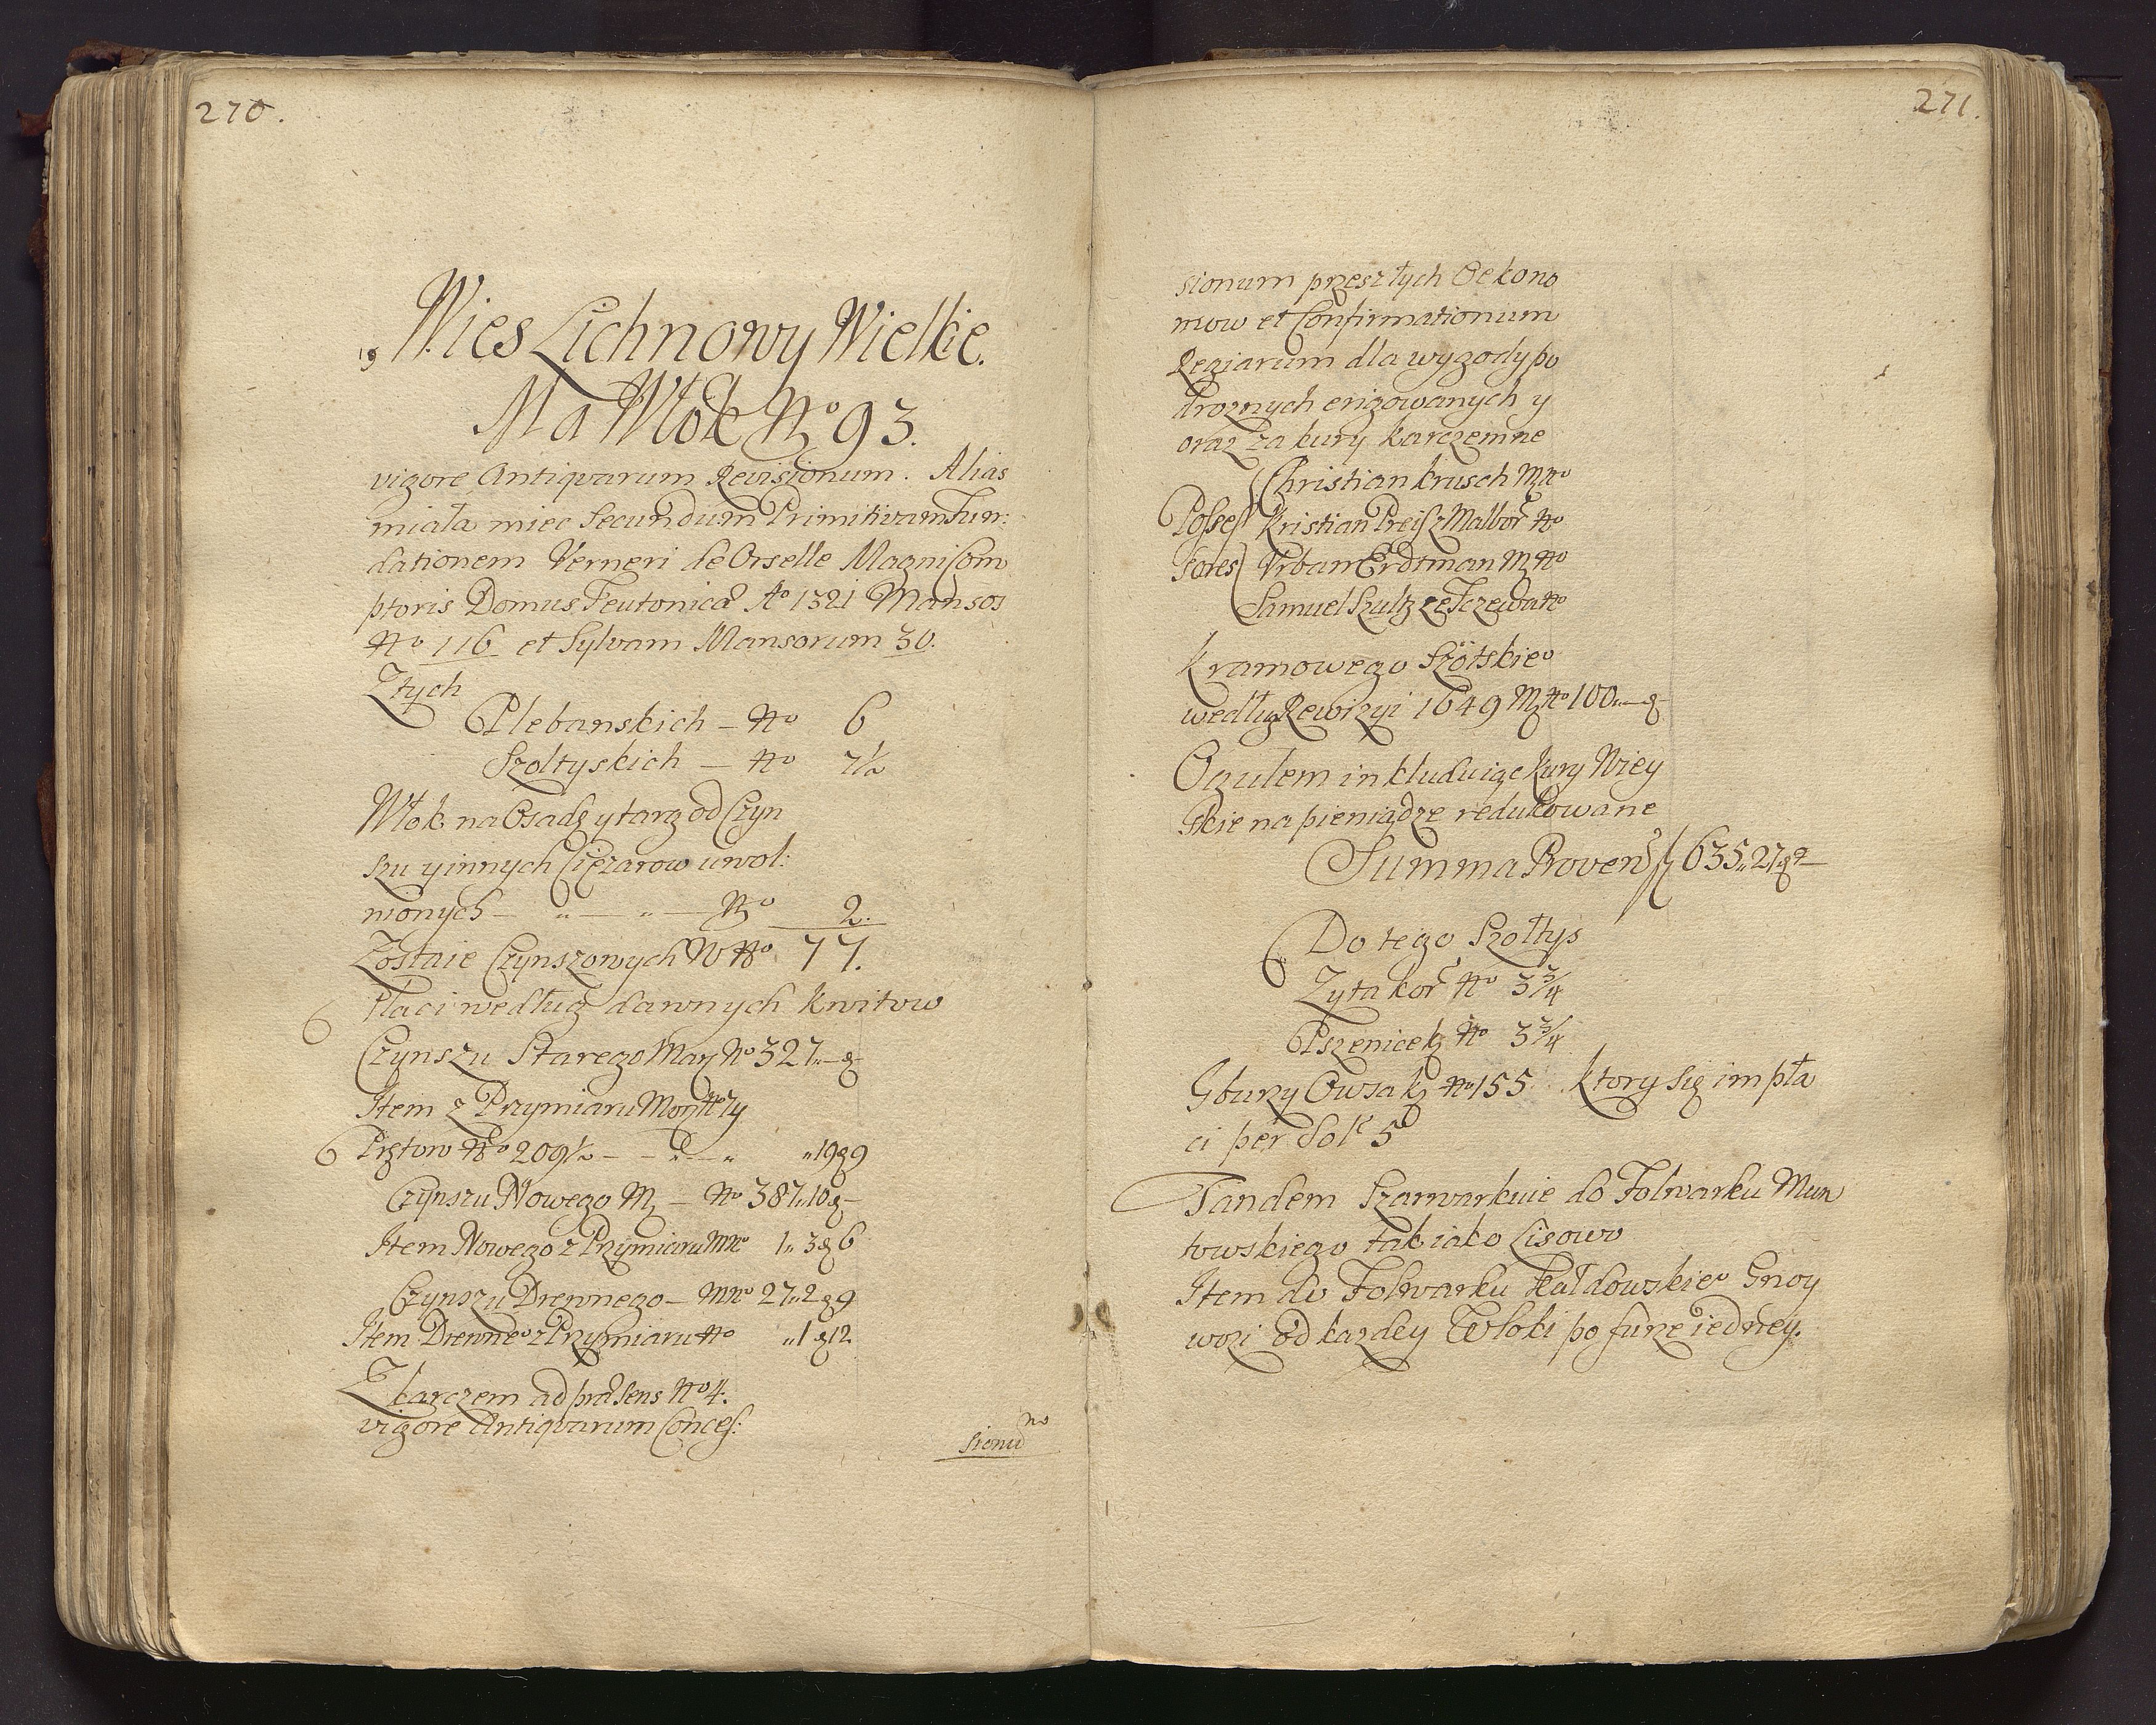 270.
Wies Lichnowy Wielkie.
Ma Włok No 93.
vigore Antiquarum Revisionum. Alias
miała miec Secundum Primitivam Fun:
dationem Verneri de Orselle Magni Com
ptoris Domus Teutonicæ Ao 1321 Mansos
No 116 et Sylvam Mansorum 30.
Z tych
Plebanskich - No 6
Szoltyskich - No 7½
Włok na Osadę y targ od Czyn
szu y innych Ciężarow uwol:
nionych - „ - „ - No 2.
Zostaie Czynszowych W No 77.
Płaci według dawnych kwitow
Czynszu Starego Mar No 327„-g
Item z Przymiaru Morg No 14
Prętow No 209½ - - „ - „ „19g9
Czynszu Nowego M - No 387„10g-
Item Nowego z Przymiaru M No 1„3g6
Czynszu Drewnego - M No 27„2g9
Item Drewneo z Przymiaru No „1g12
Z karczem ad præsens No 4.
vigore Antiquarum Conces:
sionu
271.
sionum przeszłych Oekono
mow et Confirmationum
Regiarum dla wygody po
droznych erigowanych y
oraz za kury karczemne
Christian Krusch M No
Posses Kristian Preisz Malbor No
sores Vrban Erdtman M No
Samuel Szultz ze Tczewa No
Kramowego Szotskieo
według Rewizyi 1649 M No 100„-g
Ogulem inkluduiąc kury Wiey
skie na pieniądze redukowane
Summa Proven 635„27g9-
Do tego Szołtys
Zyta kor No 3¾
Pszenice k No 3¾
Gburzy Owsa k No 155 ktory się im pła
ci per Sol 5
Tandem Szarwarkuie do Folwarku Mun
towskiego tak iako Lisowo
Item do Folwarku Kałdowskieo Gnoy
wozi od kazdey Włoki po furze iedney.